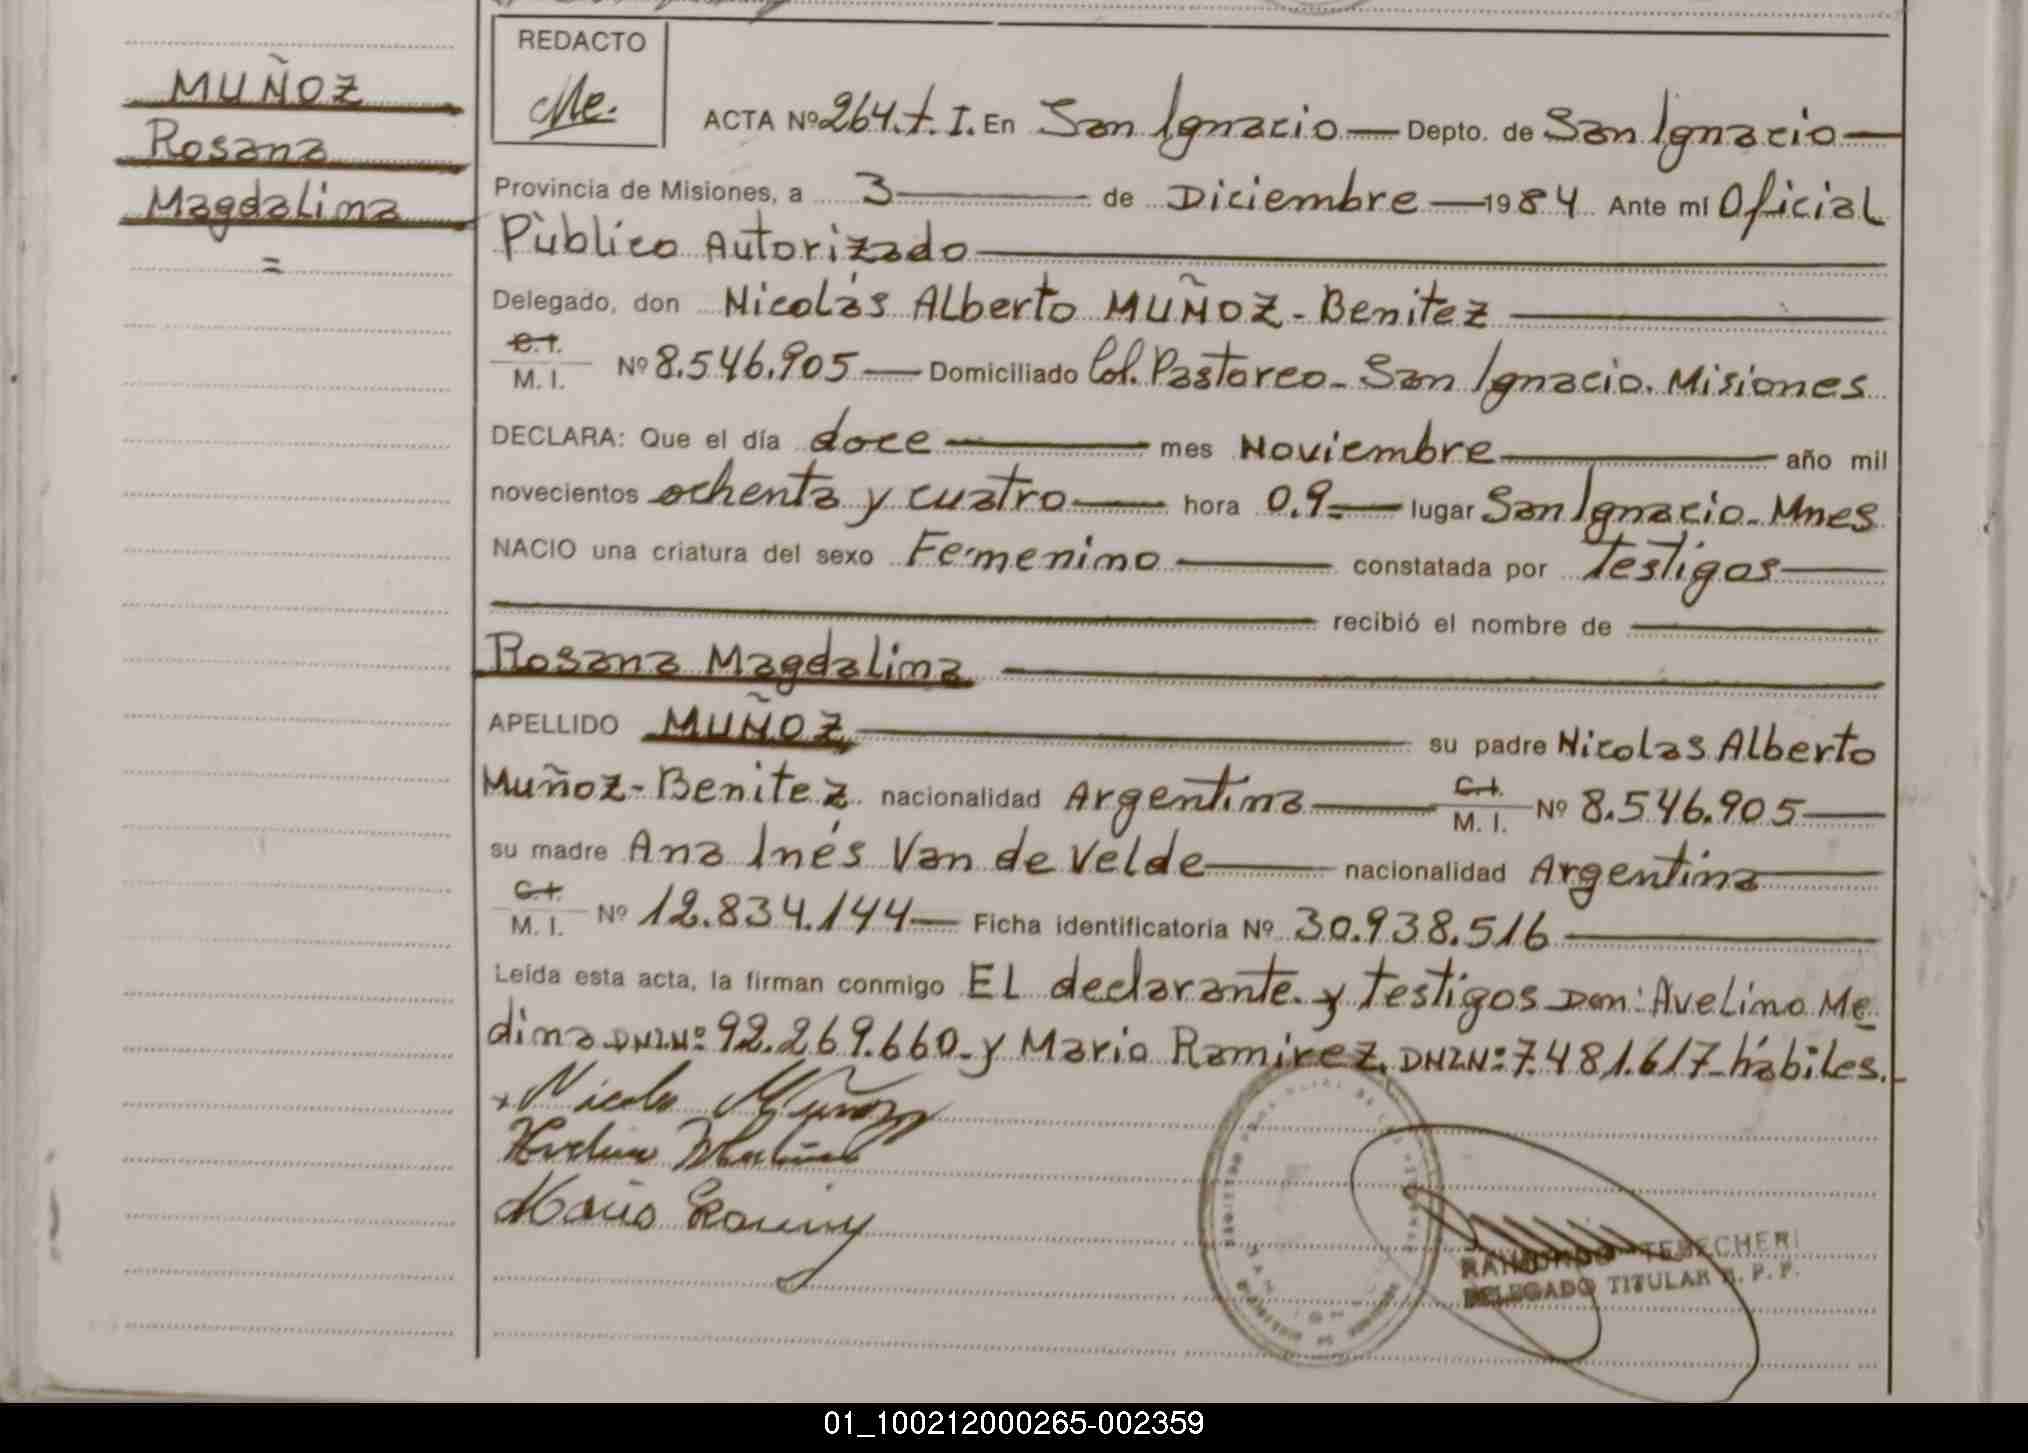 MUÑOZ
Rosana
Magdalina
=
REDACTO
Me.
ACTA Nº 264.t.I. En San Ignacio — Depto. de San Ignacio —
Provincia de Misiones, a 3 — de Diciembre — 1984 Ante mí Oficial
Pùblico Autorizado —
Delegado, don Nicolás Alberto MUÑOZ - Benitez —
C.I.
M. I. Nº 8.546.905 — Domiciliado Col. Pastoreo - San Ignacio. Misiones
DECLARA: Que el día doce — mes Noviembre — año mil
novecientos ochenta y cuatro — hora 0.9 = — lugar San Ignacio - Mnes
NACIO una criatura del sexo Femenino — constatada por testigos —
— recibió el nombre de —
Rosana Magdalina —
APELLIDO MUÑOZ — su padre Nicolas Alberto
Muñoz - Benitez nacionalidad Argentina — C.I.
M. I. Nº 8.546.905 —
su madre Ana Inés Van de Velde — nacionalidad Argentina —
C.I.
M. I. Nº 12.834.144 — Ficha identificatoria Nº 30.938.516 —
Leída esta acta, la firman conmigo EL declarante y testigos Don: Avelino Me
dina DNI Nº 92.269.660 - y Mario Ramirez, DNI Nº 7.481.617 - hábiles. -
Nicolas Muñoz
Mario
RAIMUNDO TEBECHERI
DELEGADO TITULAR R. P. P.
01_100212000265-002359